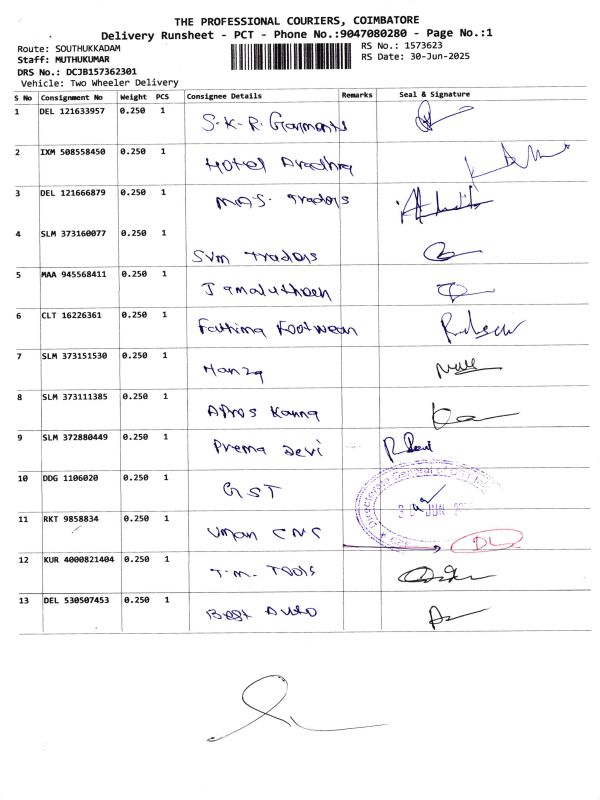 THE PROFESSIONAL COURIERS, COIMBATORE
Delivery Runsheet - PCT - Phone No.:9047080280 - Page No.:1
Route: SOUTHUKKADAM
RS No.: 1573623
Staff: MUTHUKUMAR
RS Date: 30-Jun-2025
DRS No.: DCJB157362301
Vehicle: Two Wheeler Delivery
S No Consignment No Weight PCS Consignee Details Remarks Seal & Signature
1 DEL 121633957 0.250 1 S.K.R. Garments
2 IXM 508558450 0.250 1 Hotel Aradhna
3 DEL 121666879 0.250 1 M.A.S. Traders
4 SLM 373160077 0.250 1 SVM Traders
5 MAA 945568411 0.250 1 Jamalutheen
6 CLT 16226361 0.250 1 Fathima Footwear
7 SLM 373151530 0.250 1
8 SLM 373111385 0.250 1 Kanna
9 SLM 372880449 0.250 1 Prema Devi
10 DDG 1106020 0.250 1 GST
11 RKT 9858834 0.250 1 CNC DL
12 KUR 4000821404 0.250 1 T.M. Tools
13 DEL 530507453 0.250 1 Best Auto
Directorate General of
JUN